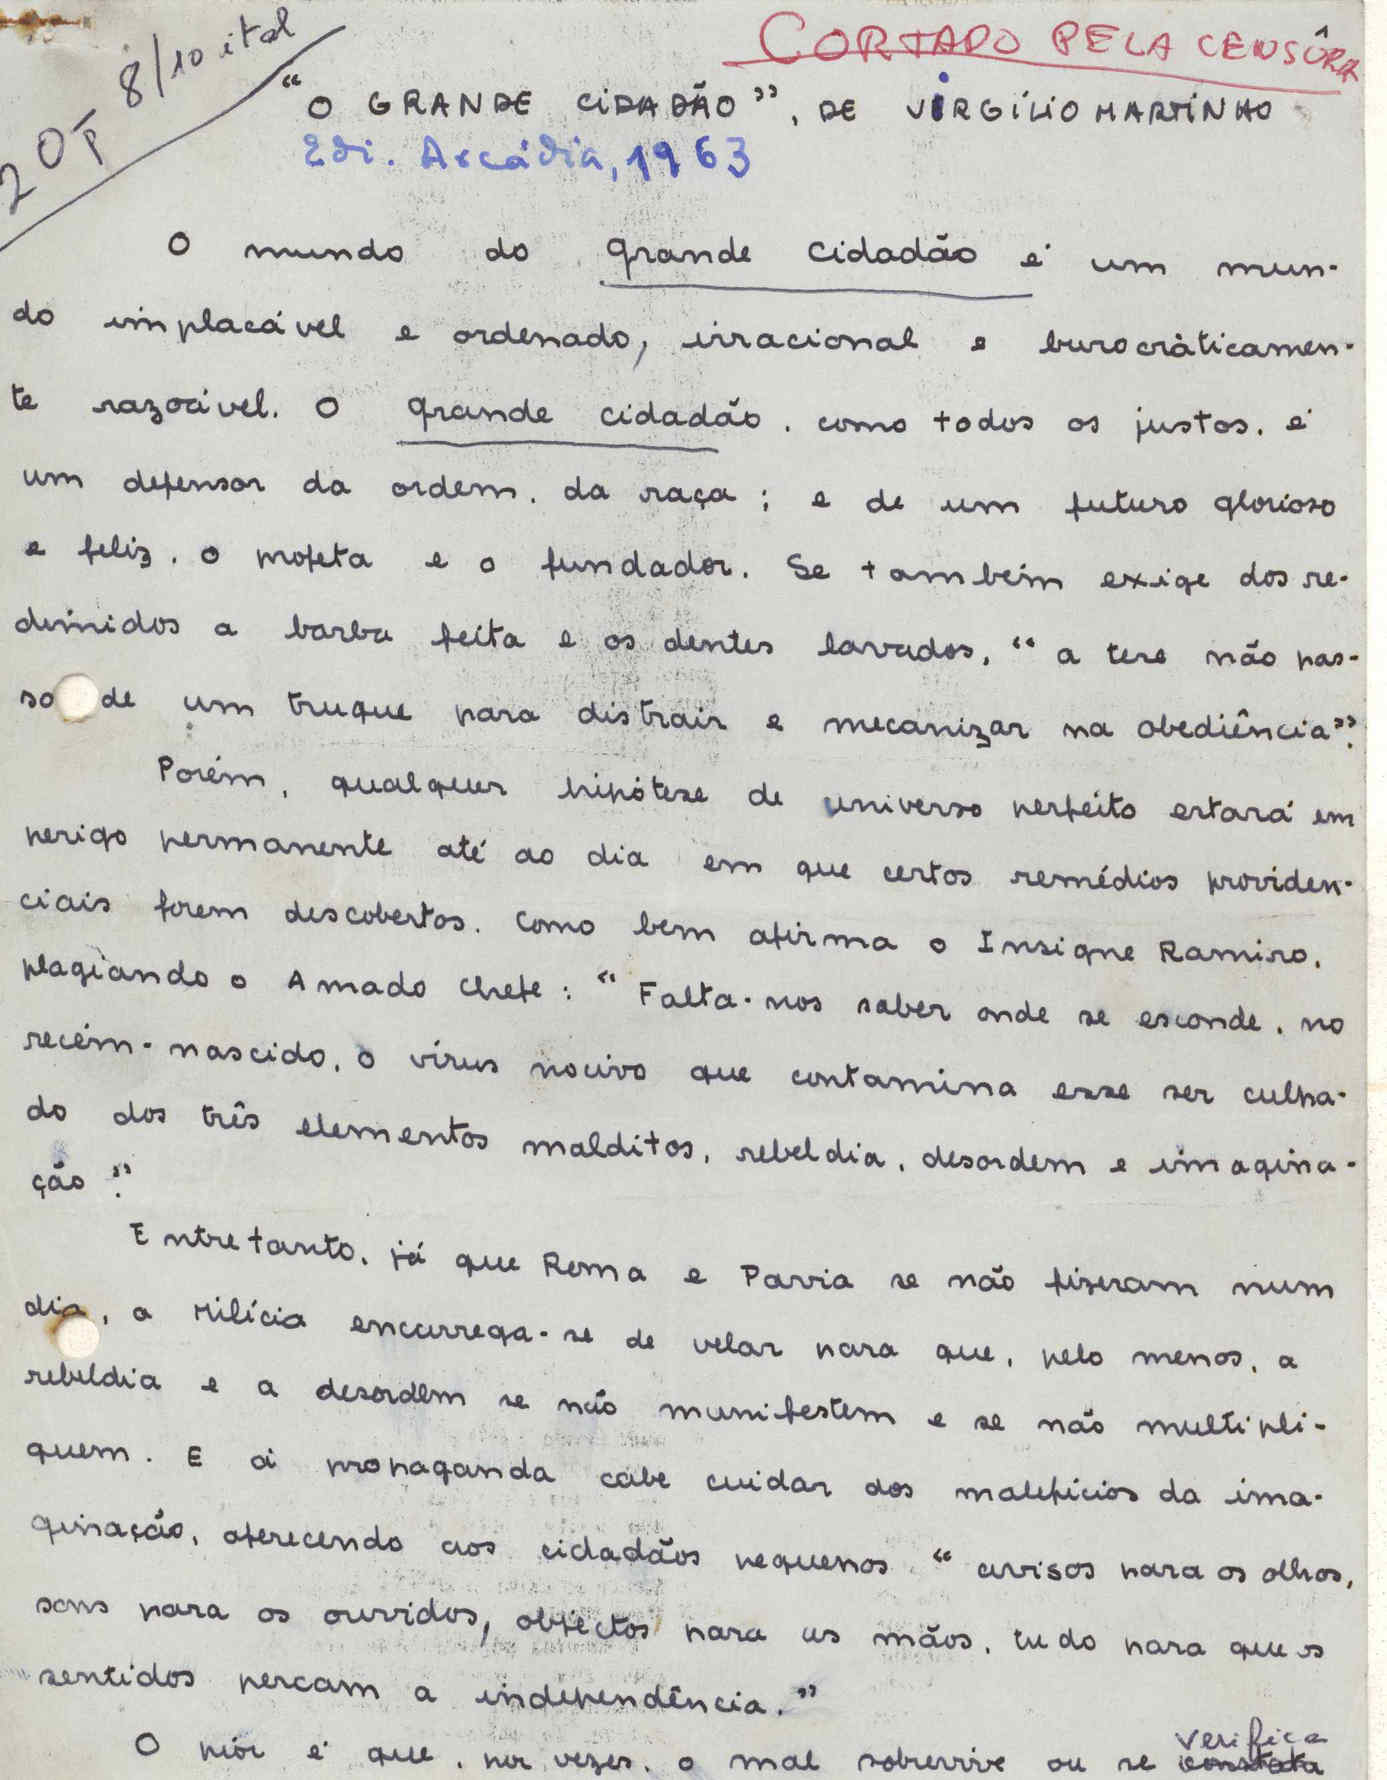 CORTADO PELA CENSÔRA
20T 8/10 ital
"O GRANDE CIDADÃO", DE VIRGÍLIO MARTINHO
Edi. Arcádia, 1963
O mundo do grande cidadão é um mun-
do implacável e ordenado, irracional e burocràticamen-
te razoável. O grande cidadão, como todos os justos, é
um defensor da ordem, da raça; e de um futuro glorioso
e feliz, o profeta e o fundador. Se também exige dos re-
dimidos a barba feita e os dentes lavados, "a tese não pas-
sa de um truque para distrair e mecanizar na obediência".
Porém, qualquer hipótese de universo perfeito estará em
perigo permanente até ao dia em que certos remédios providen-
ciais forem descobertos. Como bem afirma o Insigne Ramiro,
plagiando o Amado Chefe: "Falta-nos saber onde se esconde, no
recém-nascido, o vírus nocivo que contamina esse ser culpa-
do dos três elementos malditos, rebeldia, desordem e imagina-
ção".
Entretanto, já que Roma e Pavia se não fizeram num
dia, a Milícia encarrega-se de velar para que, pelo menos, a
rebeldia e a desordem se não manifestem e se não multipli-
quem. E à propaganda cabe cuidar dos malefícios da ima-
ginação, oferecendo aos cidadãos pequenos "avisos para os olhos,
sons para os ouvidos, objectos para as mãos, tudo para que os
sentidos percam a independência."
O piór é que, por vezes, o mal sobrevive ou se constata verifica